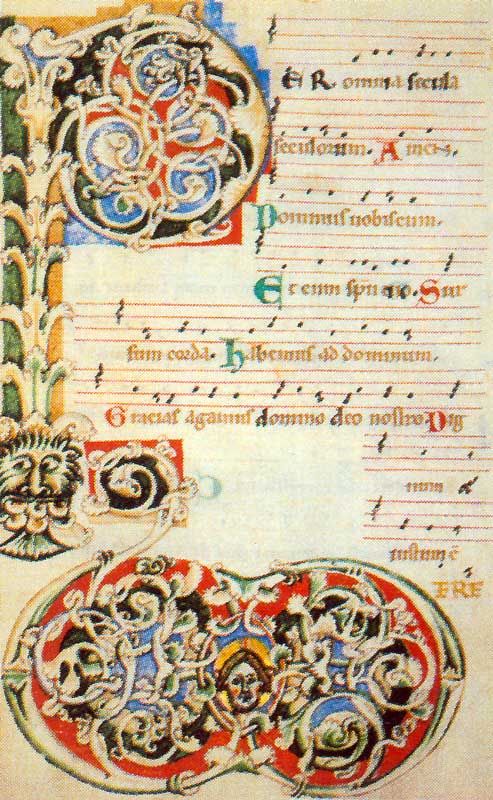 PER omnia secula
seculorum. Amen.
Dominus uobiscum.
Et cum spu tuo. Sur
sum corda. Habemus ad dominum.
Gracias agamus domino deo nostro Dig
num &
iustum ē
ERE